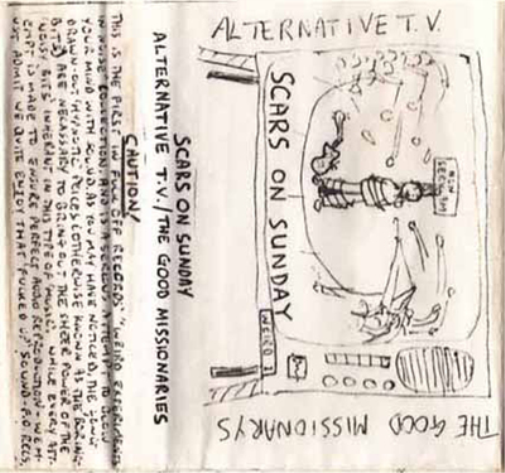 ALTERNATIVE T.V.
SCARS ON SUNDAY
NON SERVIAM
WEIRD 1
THE GOOD MISSIONARYS
SCARS ON SUNDAY
ALTERNATIVE T.V./THE GOOD MISSIONARIES
CAUTION!
THIS IS THE FIRST IN FUCK OFF RECORDS' 'WEIRD
IN NOISE' COLLECTION. AND IS A SERIOUS ATTEMPT TO BLOW
YOUR MIND WITH SOUND. AS YOU MAY HAVE NOTICED, THE
DRAWN-OUT 'HYPNOTIC' PIECES (OTHERWISE KNOWN AS THE BORING
BITS) ARE NECESSARY TO BRING OUT THE SHEER POWER OF THE
'NOISY BITS' INHERANT IN THIS TYPE OF 'MUSIC'. WHILE EVERY ATT-
EMPT IS MADE TO ENSURE PERFECT AUDIO REPRODUCTION - WE M-
UST ADMIT WE QUITE ENJOY THAT 'FUCKED UP' SOUND - F.O. RECS.